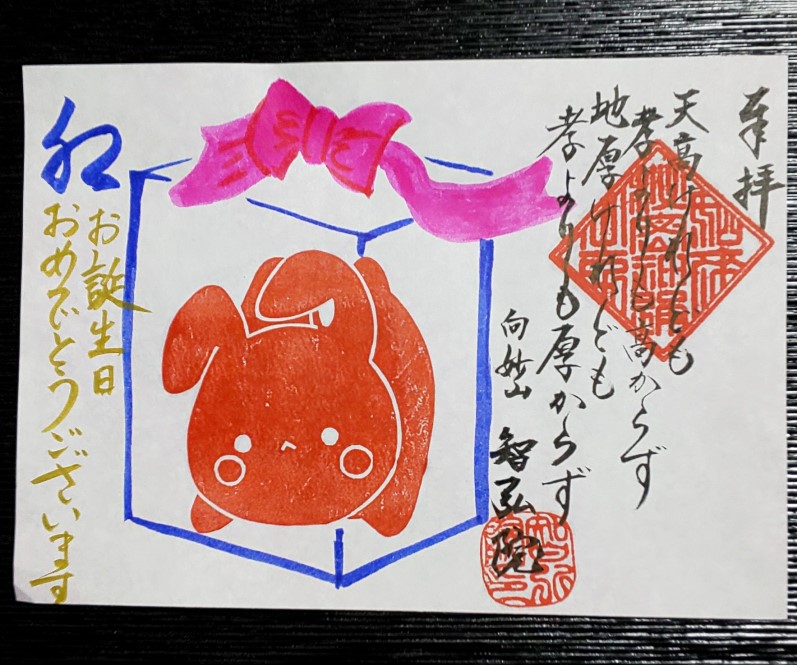 奉拝
天高けれども
孝よりも高からず
地厚けれども
孝よりも厚からず
向妙山
智弘院
卯
お誕生日
おめでとうございます